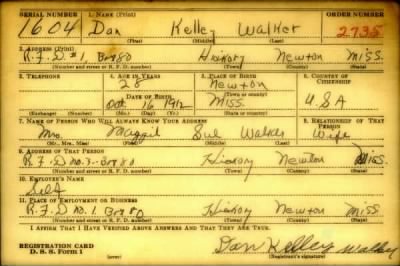 SERIAL NUMBER 1. NAME (Print) ORDER NUMBER
1604 Dan Kelley Walker 2735
(First) (Middle) (Last)
2. ADDRESS (Print)
R.F.D. #1 Box 80 Hickory Newton Miss.
(Number and street or R. F. D. number) (Town) (County) (State)
3. TELEPHONE 4. AGE IN YEARS 5. PLACE OF BIRTH 6. COUNTRY OF CITIZENSHIP
28 Newton
DATE OF BIRTH (Town or county)
Oct 16 1912 Miss. U.S.A
(Exchange) (Number) (Mo.) (Day) (Yr.) (State or country)
7. NAME OF PERSON WHO WILL ALWAYS KNOW YOUR ADDRESS 8. RELATIONSHIP OF THAT PERSON
Mrs. Maggie Sue Walker Wife
(Mr., Mrs., Miss) (First) (Middle) (Last)
9. ADDRESS OF THAT PERSON
R.F.D no. Box 80 Hickory Newton Miss.
(Number and street or R. F. D. number) (Town) (County) (State)
10. EMPLOYER'S NAME
Self
11. PLACE OF EMPLOYMENT OR BUSINESS
R.F.D no. 1. Box 80 Hickory Newton Miss.
(Number and street or R. F. D. number) (Town) (County) (State)
I AFFIRM THAT I HAVE VERIFIED ABOVE ANSWERS AND THAT THEY ARE TRUE.
REGISTRATION CARD
D. S. S. FORM 1 (over) Dan Kelley Walker
(Registrant's signature)